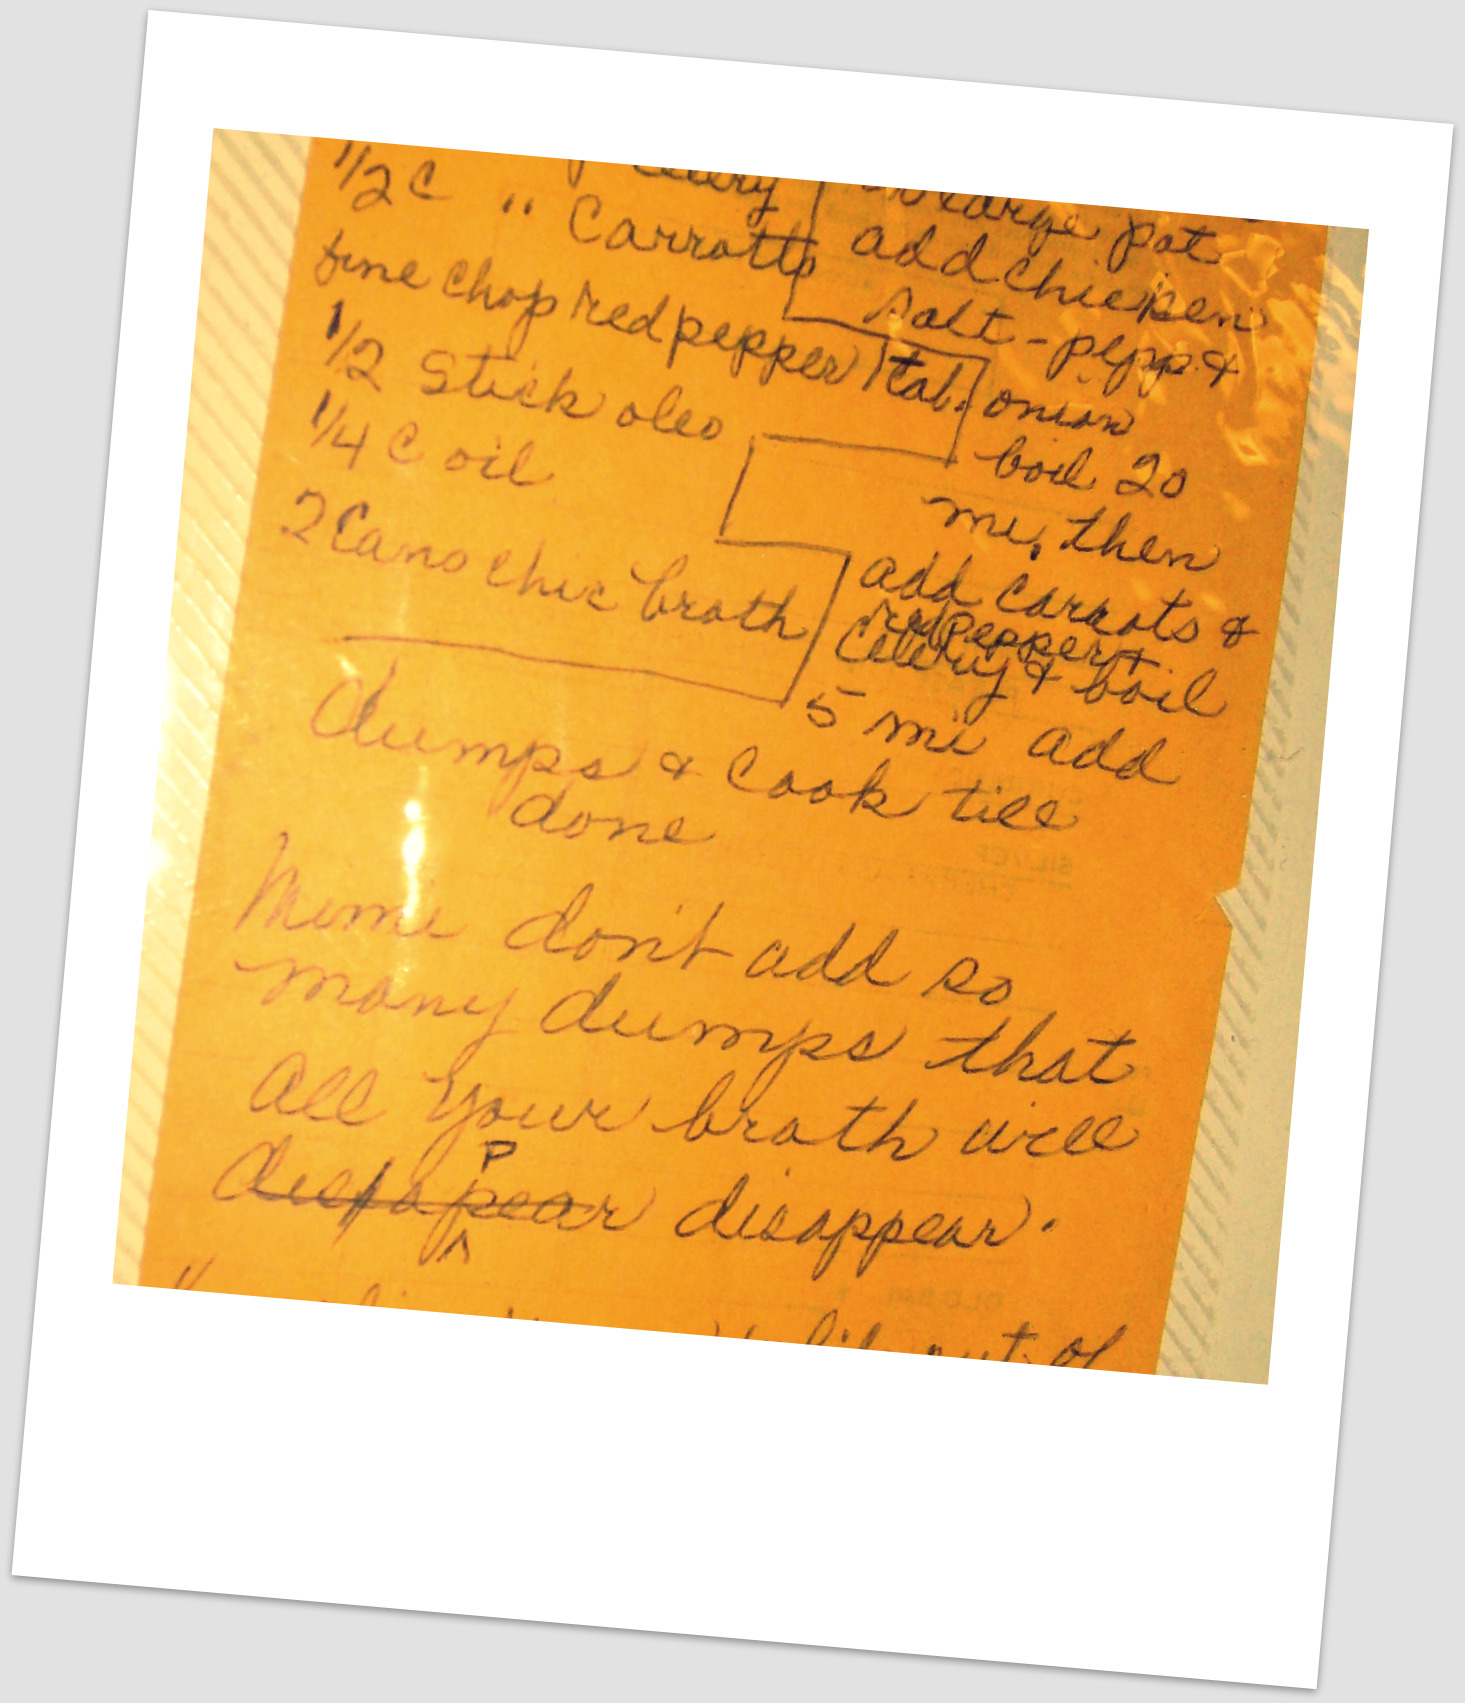 Celery
1/2 C " Carrotts
fine chop red pepper 1 tab.
1/2 Stick oleo
1/4 C oil
2 Cans chic broth
large pot
add chicken
salt - pepp &
onion
boil 20
mi, then
add carrots &
red pepper +
Celery & boil
5 mi add
dumps & Cook till
done
Mimi don't add so
many dumps that
all your broth will
P
disapear disappear.
^
out of